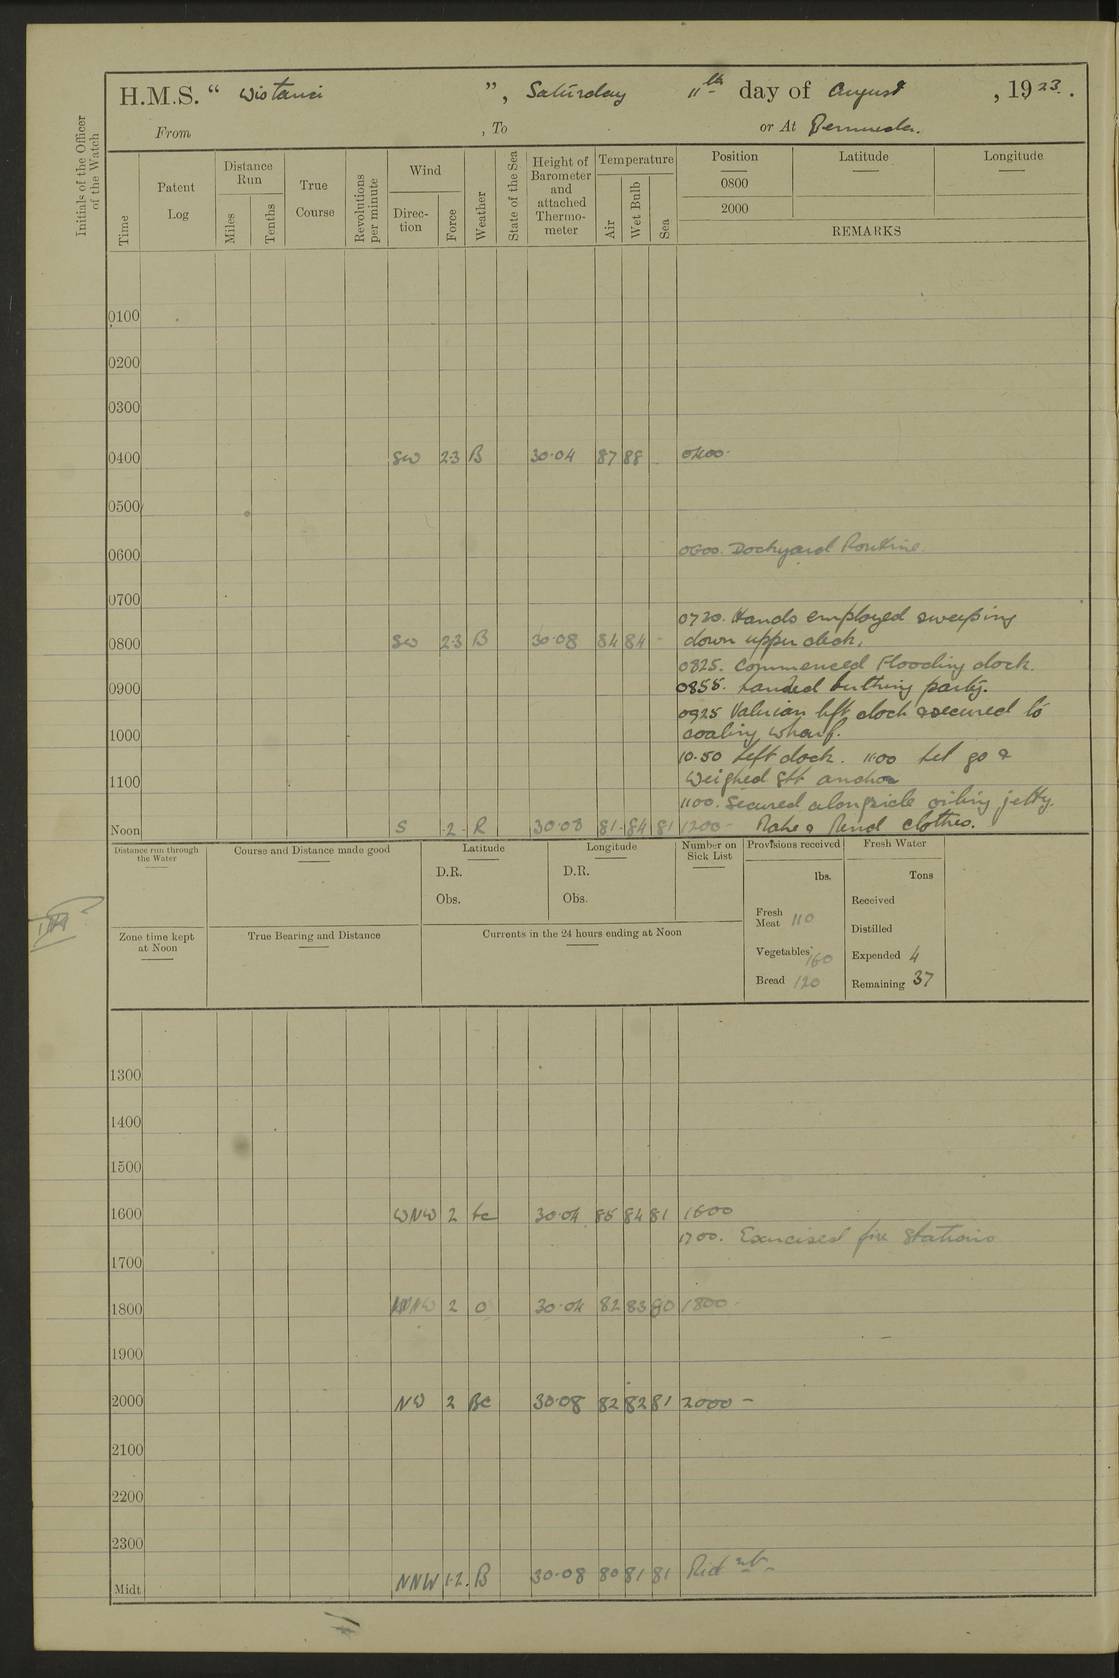 H.M.S. “ Wistaria ”, Saturday 11th day of August, 1923.
From , To or At Bermuda.
Initials of the Officer of the Watch
Time
Patent Log
Distance Run
Miles
Tenths
True Course
Revolutions per minute
Wind
Direc-tion
Force
Weather
State of the Sea
Height of Barometer and attached Thermo-meter
Temperature
Air
Wet Bulb
Sea
Position Latitude Longitude
0800
2000
REMARKS
0100
0200
0300
0400 SW 2·3 B 30·04 87 88 0400·
0500
0600 0600. Dockyard Routine.
0700
0720. Hands employed sweeping
0800 SW 2·3 B 30·08 84 84 - down upper deck.
0825. Commenced Flooding dock.
0900 0855. Landed berthing party.
0925 Valerian left dock & secured to
1000 coaling wharf.
10·50 Left dock. 11·00 Let go &
1100 Weighed stb anchor
1100. Secured alongside oiling jetty.
Noon S ·2· R 30·08 81· 84 81 1200 - Make & Mend clothes.
Distance run through the Water
Course and Distance made good
Latitude
D.R.
Obs.
Longitude
D.R.
Obs.
Number on Sick List
Provisions received
lbs.
Fresh Meat 110
Vegetables 160
Bread 120
Fresh Water
Tons
Received
Distilled
Expended 4
Remaining 37
Zone time kept at Noon
True Bearing and Distance
Currents in the 24 hours ending at Noon
1300
1400
1500
1600 WNW 2 bc 30·04 85 84 81 1600
1700. Exercised fire stations
1700
1800 2 O 30·04 82 83 80 1800 -
1900
2000 NW 2 BC 30·08 82 82 81 2000 -
2100
2200
2300
Midt NNW 1·2. B 30·08 80 81 81